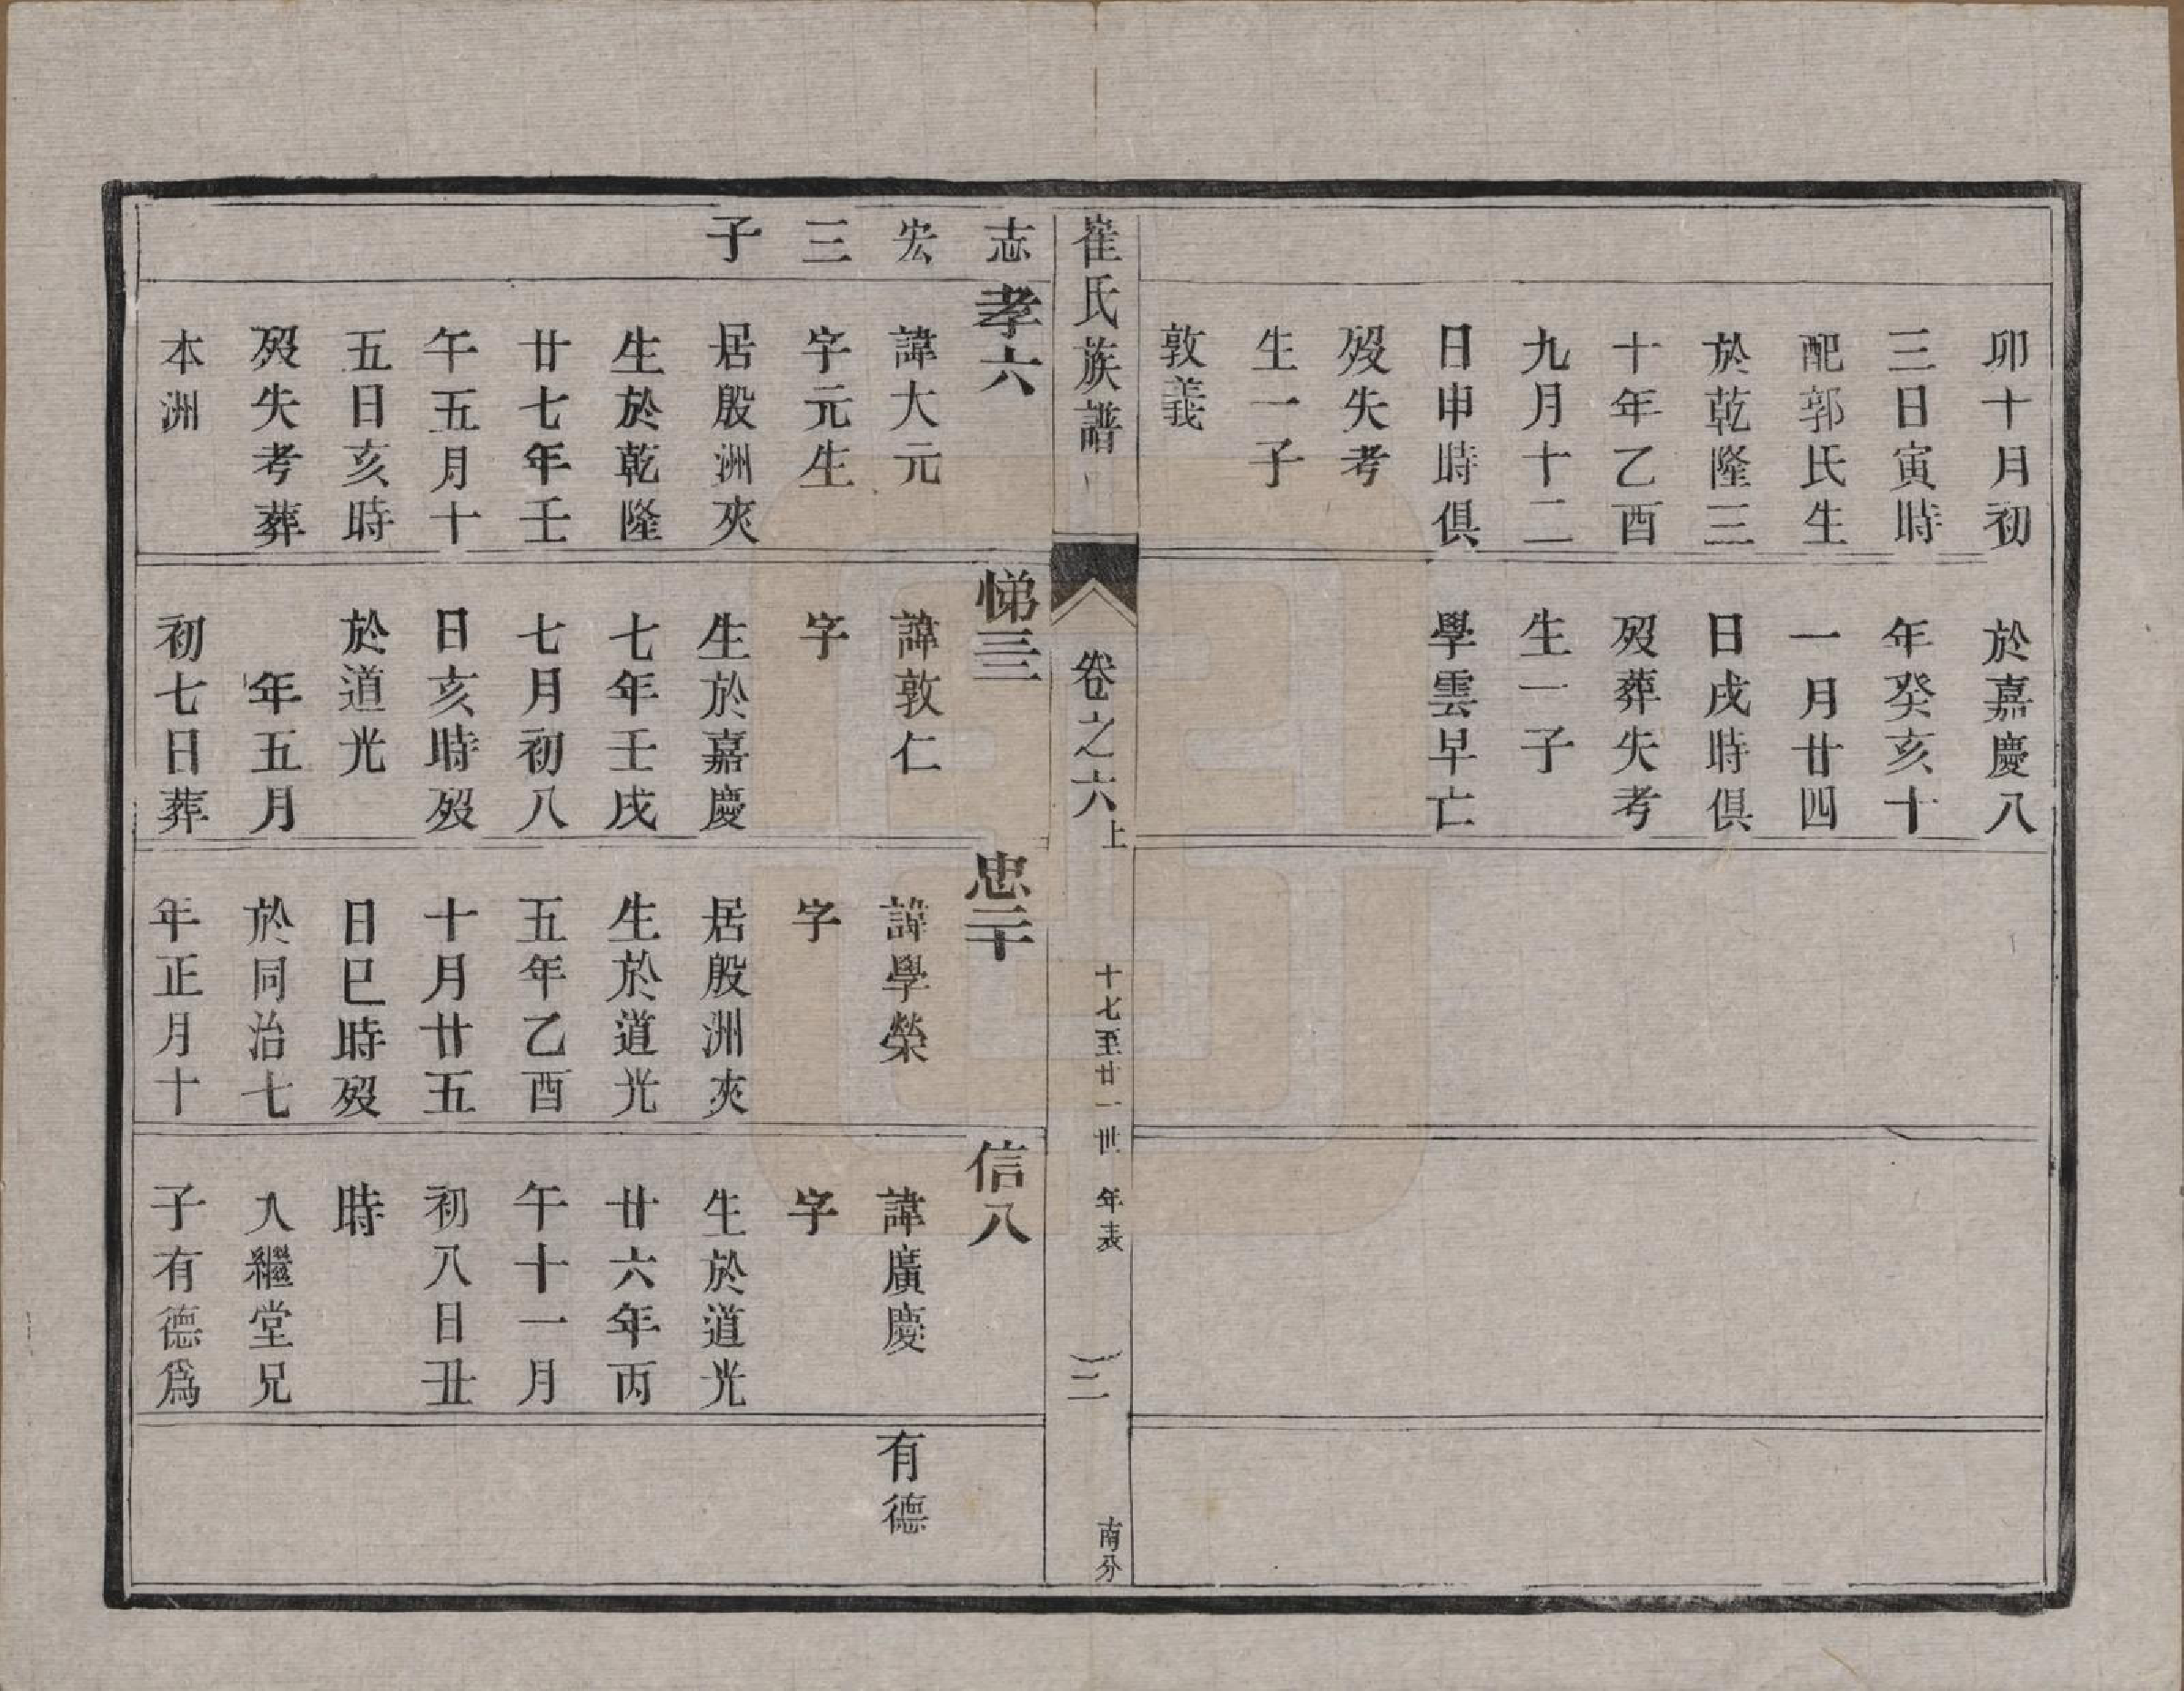 卯十月初
三日寅時
配郭氏生
於乾隆三
十年乙酉
九月十二
日申時俱
歿失考
生一子
敦義
於嘉慶八
年癸亥十
一月廿四
日戌時俱
歿葬失考
生一子
學雲早亡
崔氏族譜
卷之六上
十七至廿一世 年表
三
南分
志
宏
三
子
孝六
諱大元
字元生
居殷洲夾
生於乾隆
廿七年壬
午五月十
五日亥時
歿失考葬
本洲
悌三
諱敦仁
字
生於嘉慶
七年壬戌
七月初八
日亥時歿
於道光
年五月
初七日葬
忠二十
諱學榮
字
居殷洲夾
生於道光
五年乙酉
十月廿五
日巳時歿
於同治七
年正月十
信八
諱廣慶
字
生於道光
廿六年丙
午十一月
初八日丑
時
入繼堂兄
子有德為
有德